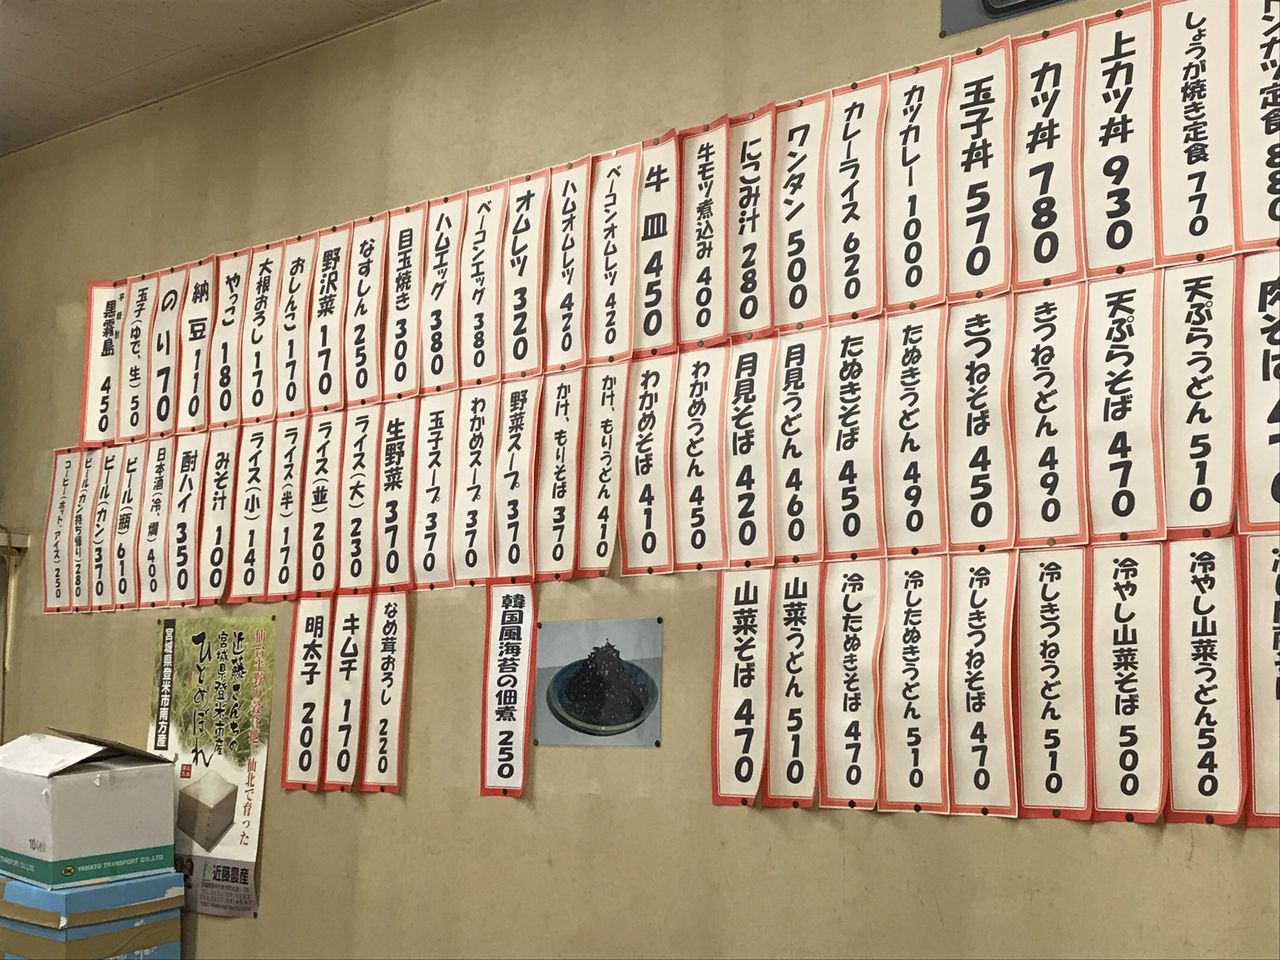 ンカツ定食 880
しょうが焼き定食 770
上カツ丼 930
カツ丼 780
玉子丼 570
カツカレー 1000
カレーライス 620
ワンタン 500
にこみ汁 280
牛モツ煮込み 400
牛皿 450
ベーコンオムレツ 420
ハムオムレツ 420
オムレツ 320
ベーコンエッグ 380
ハムエッグ 380
目玉焼き 300
なすしん 250
野沢菜 170
おしんこ 170
大根おろし 170
やっこ 180
納豆 110
のり 70
玉子(ゆで、生) 50
黒霧島 450
肉そば
天ぷらうどん 510
天ぷらそば 470
きつねうどん 490
きつねそば 450
たぬきうどん 490
たぬきそば 450
月見うどん 460
月見そば 420
わかめうどん 450
わかめそば 410
かけ、もりうどん 410
かけ、もりそば 370
野菜スープ 370
わかめスープ 370
玉子スープ 370
生野菜 370
ライス(大) 230
ライス(並) 200
ライス(半) 170
ライス(小) 140
みそ汁 100
酎ハイ 350
日本酒(冷、燗) 400
ビール(瓶) 610
ビール(カン) 370
ビール(カン持ち帰り) 280
コーヒー(ホット、アイス) 250
冷やし山菜うどん 540
冷やし山菜そば 500
冷しきつねうどん 510
冷しきつねそば 470
冷したぬきうどん 510
冷したぬきそば 470
山菜うどん 510
山菜そば 470
韓国風海苔の佃煮 250
なめ茸おろし 220
キムチ 170
明太子 200
仙北で育った
近藤さんちの
宮城県登米市産
ひとめぼれ
宮城県登米市南方産
近藤農産
YAMATO TRANSPORT CO.,LTD.